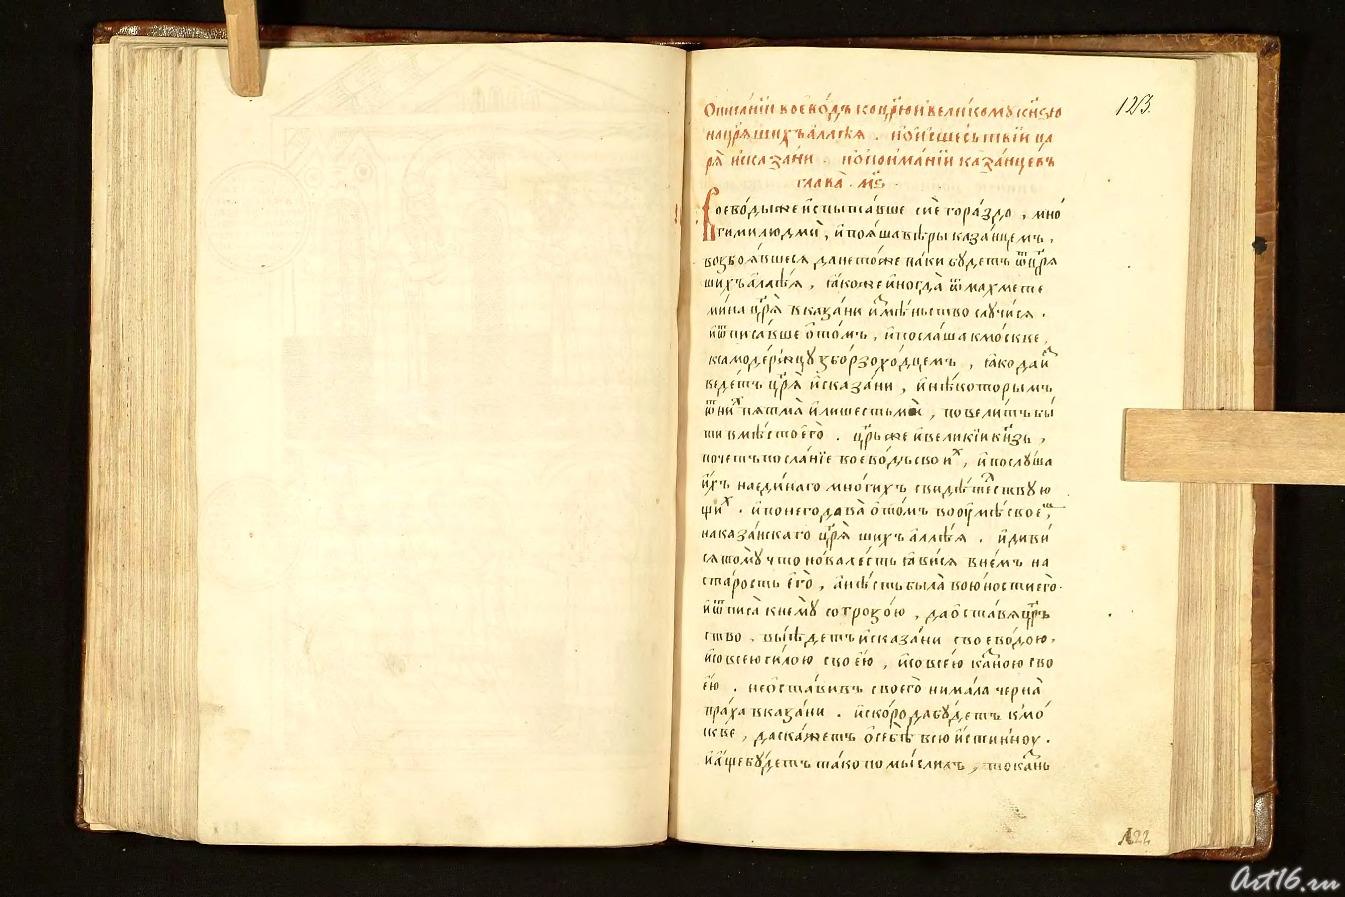 Описанїи воевѡдъ ко цр҃ю и великому кн҃зю
на цр҃я шихъаллѣя . и о исшествїи ца
ря̀ исказа́ни . и о поиманїи каза́нцевъ
глава̀ . м҃ѕ .
123.
Воево́ды же испыта́вше сиѐ гора́здо , мно́
гими людмѝ , и поя́ша вѣ́ры каза́нцемъ ,
возбоя́вшеся да не то́же па́ки бу́детъ ѿ цр҃я
шихъаллѣ́я , я́коже иногда̀ ѿ махмете
ми́на цр҃я̀ в каза́ни и҆змѣ́ньство случи́ся .
и ѿписа́вше ѡ то́мъ , и посла́ша к москвѣ ,
к самоде́ржцу з бо́рзоходцемъ , я́ко да и҆з
веде́тъ цр҃я̀ исказа́ни , и нѣ́которымъ
ѿ ни́х пятма̀ и ли шестьма̀ , повели́тъ бы́
ти в мѣ́сто его̀ . цр҃ь же и вели́кїи кн҃зь ,
почетъ посла́нїе воево́дъ свои́х , и послу́ша
и́хъ на еди́наго мно́гихъ свидѣ́телствую
щи́х . и понегодава̀ ѡ то́мъ во оумѣ̀ свое́м ,
на каза́нскаго цр҃я̀ шихъаллѣ́я . и диви́
ся тому̀ что но́ва ле́сть яви́ся в не́мъ на
ста́рость его̀ , а нѣ́сть была̀ во ю́ности его̀ .
и ѿписа̀ к нему̀ со грозо́ю , да ѡста́вя цр҃ь
ство . вы́ѣдетъ исказа́ни с воево́дою ,
и со всею си́лою свое́ю , и со все́ю казною сво
е́ю . не ѡста́вивъ своего̀ ни ма́ла черна̀
пра́ха в каза́ни . и ско́ро да бу́детъ к мо
сквѣ́ , да ска́жетъ ѡ себѣ̀ всю и́стинноу .
и а́ще бу́детъ тако помы́слихъ , то ка́знь
122
Art16.ru